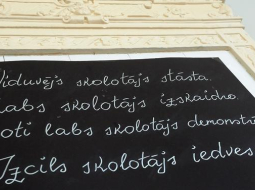 Viduvējs skolotājs stāsta.
Labs skolotājs izskaidro.
oti labs skolotājs demonstr
Izcils skolotājs iedves